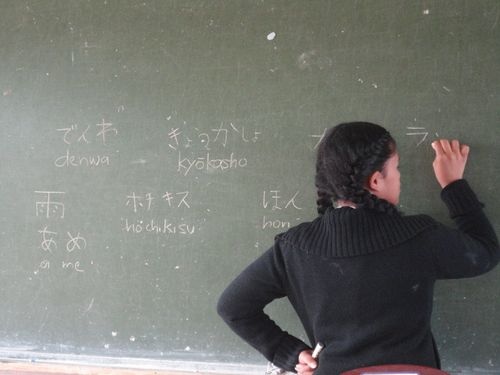 でんわ
denwa
きょうかしょ
kyōkasho
ラ
雨
あめ
a me
ホチキス
hōchikisu
ほん
hon